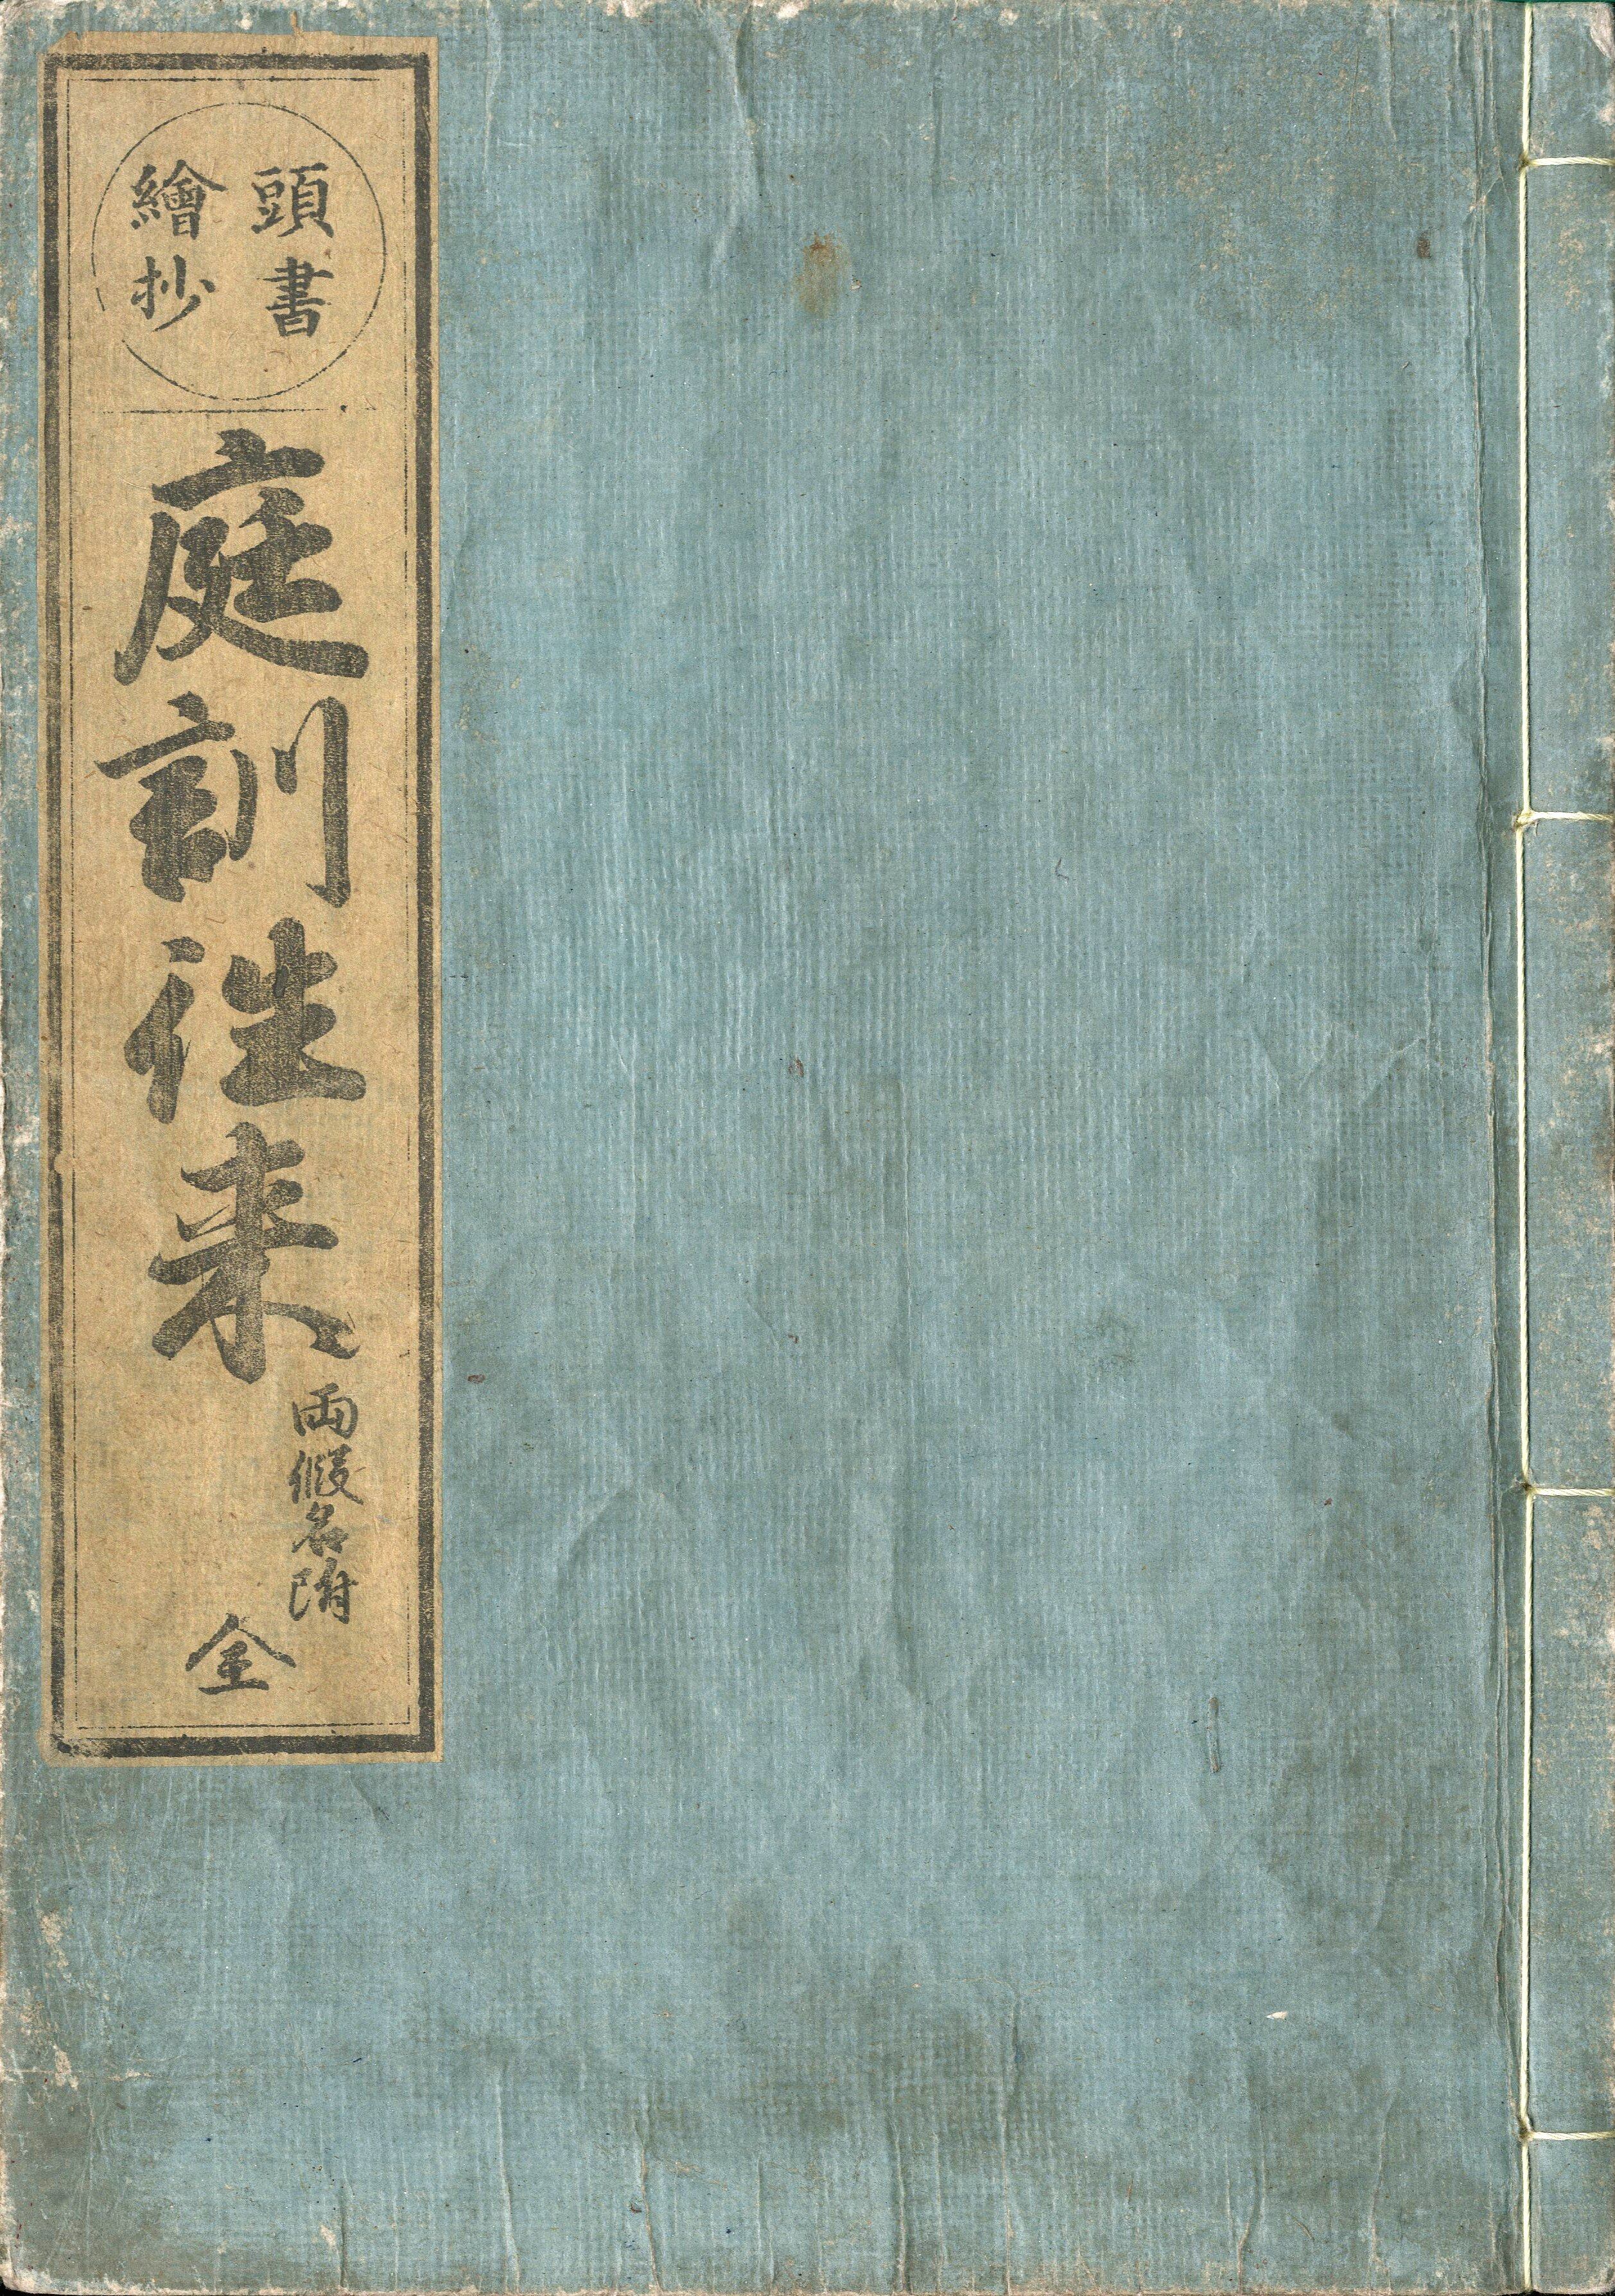 頭書
繪抄
庭訓往来
両假名附
全